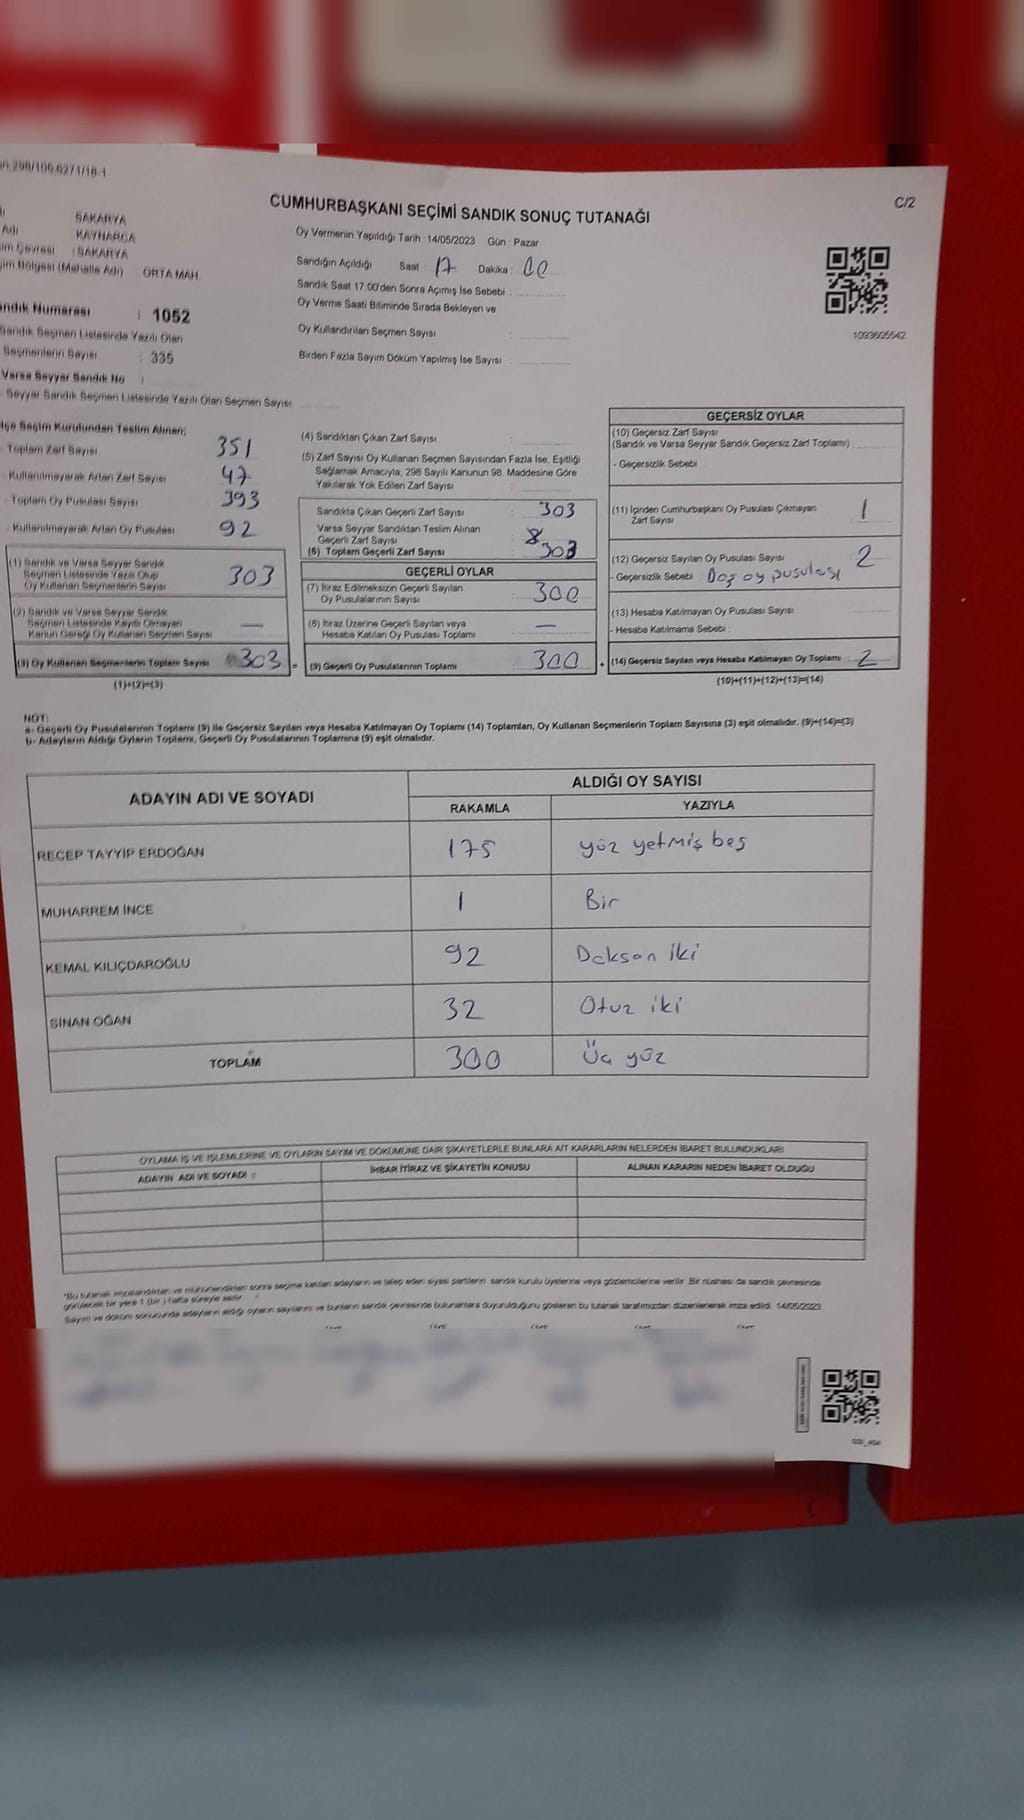 298/106.6271/18-1
C/2
CUMHURBAŞKANI SEÇİMİ SANDIK SONUÇ TUTANAĞI
SAKARYA
Adı KAYNARCA
Çevresi : SAKARYA
Bölgesi (Mahalle Adı) ORTA MAH.
Oy Vermenin Yapıldığı Tarih : 14/05/2023 Gün : Pazar
Sandığın Açıldığı Saat : 17 Dakika : 00
Sandık Saat 17:00'den Sonra Açımış İse Sebebi :
Oy Verme Saati Bitiminde Sırada Bekleyen ve
Oy Kullandırılan Seçmen Sayısı :
Birden Fazla Sayım Döküm Yapılmış İse Sayısı :
1093605542
Sandık Numarası : 1052
Sandık Seçmen Listesinde Yazılı Olan
Seçmenlerin Sayısı : 335
Varsa Seyyar Sandık No :
Seyyar Sandık Seçmen Listesinde Yazılı Olan Seçmen Sayısı
İlçe Seçim Kurulundan Teslim Alınan;
- Toplam Zarf Sayısı 351
- Kullanılmayarak Artan Zarf Sayısı 47
- Toplam Oy Pusulası Sayısı 393
- Kullanılmayarak Artan Oy Pusulası 92
(1) Sandık ve Varsa Seyyar Sandık
Seçmen Listesinde Yazılı Olup
Oy Kullanan Seçmenlerin Sayısı 303
(2) Sandık ve Varsa Seyyar Sandık
Seçmen Listesinde Kayıtlı Olmayan
Kanun Gereği Oy Kullanan Seçmen Sayısı —
(3) Oy Kullanan Seçmenlerin Toplam Sayısı 303 =
(1)+(2)=(3)
(4) Sandıktan Çıkan Zarf Sayısı :
(5) Zarf Sayısı Oy Kullanan Seçmen Sayısından Fazla İse, Eşitliği
Sağlamak Amacıyla, 298 Sayılı Kanunun 98. Maddesine Göre
Yakılarak Yok Edilen Zarf Sayısı :
Sandıkta Çıkan Geçerli Zarf Sayısı : 303
Varsa Seyyar Sandıktan Teslim Alınan
Geçerli Zarf Sayısı
(6) Toplam Geçerli Zarf Sayısı 303
GEÇERLİ OYLAR
(7) İtiraz Edilmeksizin Geçerli Sayılan
Oy Pusulalarının Sayısı : 300
(8) İtiraz Üzerine Geçerli Sayılan veya
Hesaba Katılan Oy Pusulası Toplamı : —
(9) Geçerli Oy Pusulalarının Toplamı 300 +
GEÇERSİZ OYLAR
(10) Geçersiz Zarf Sayısı
(Sandık ve Varsa Seyyar Sandık Geçersiz Zarf Toplamı) :
- Geçersizlik Sebebi :
(11) İçinden Cumhurbaşkanı Oy Pusulası Çıkmayan
Zarf Sayısı 1
(12) Geçersiz Sayılan Oy Pusulası Sayısı : 2
- Geçersizlik Sebebi : Boş oy pusulası
(13) Hesaba Katılmayan Oy Pusulası Sayısı :
- Hesaba Katılmama Sebebi :
(14) Geçersiz Sayılan veya Hesaba Katılmayan Oy Toplamı : 2
(10)+(11)+(12)+(13)=(14)
NOT:
a- Geçerli Oy Pusulalarının Toplamı (9) ile Geçersiz Sayılan veya Hesaba Katılmayan Oy Toplamı (14) Toplamları, Oy Kullanan Seçmenlerin Toplam Sayısına (3) eşit olmalıdır. (9)+(14)=(3)
b- Adayların Aldığı Oyların Toplamı, Geçerli Oy Pusulalarının Toplamına (9) eşit olmalıdır.
ADAYIN ADI VE SOYADI ALDIĞI OY SAYISI
RAKAMLA YAZIYLA
RECEP TAYYİP ERDOĞAN 175 yüz yetmiş beş
MUHARREM İNCE 1 Bir
KEMAL KILIÇDAROĞLU 92 Doksan iki
SİNAN OĞAN 32 Otuz iki
TOPLAM 300 Üç yüz
OYLAMA İŞ VE İŞLEMLERİNE VE OYLARIN SAYIM VE DÖKÜMÜNE DAİR ŞİKAYETLERLE BUNLARA AİT KARARLARIN NELERDEN İBARET BULUNDUKLARI
ADAYIN ADI VE SOYADI İHBAR İTİRAZ VE ŞİKAYETİN KONUSU ALINAN KARARIN NEDEN İBARET OLDUĞU
*Bu tutanak imzalandıktan ve mühürlendikten sonra seçime katılan adayların ve talep eden siyasi partilerin sandık kurulu üyelerine veya gözlemcilerine verilir. Bir nüshası da sandık çevresinde
görülecek bir yere 1 (bir) hafta süreyle asılır.
Sayım ve döküm sonucunda adayların aldığı oyların sayılarını ve bunların sandık çevresinde bulunanlara duyurulduğunu gösteren bu tutanak tarafımızdan düzenlenerek imza edildi. 14/05/2023